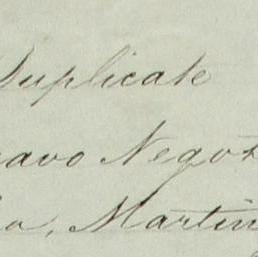 Duplicate
avo Negot
a, Martin